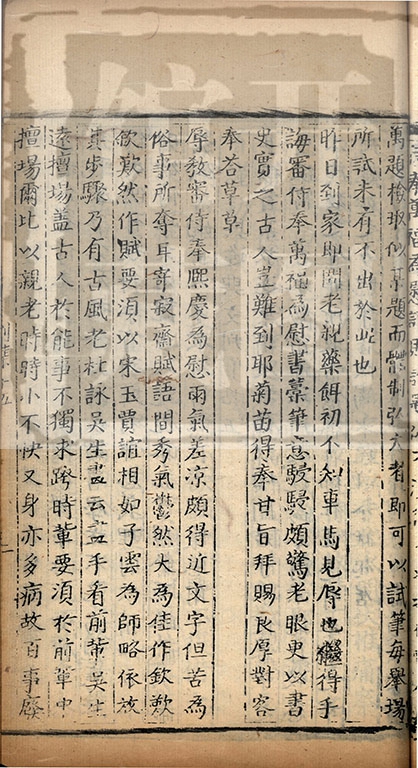 萬題檢收似某題而體制弘大者即可以試筆每舉場
所試未有不出於此也
昨日到家即問老親藥餌初不知車馬見辱也繼得手
誨審侍奉萬福為慰書藁筆意駸駸頗驚老眼更以書
史實之古人豈難到耶菊苗得奉甘旨拜賜良厚對客
奉荅草草
辱教審侍奉熙慶為慰雨氣差凉頗得近文字但苦為
俗事所奪耳寄寂齋賦語間秀氣鬱然大為佳作欽歎
欽歎然作賦要須以宋玉賈誼相如子雲為師略依放
其步驟乃有古風老杜詠吳生畫云畫手看前輩吳生
遠擅場盖古人於能事不獨求跨時輩要須於前軰中
擅場爾比以親老時時小不快又身亦多病故百事廢